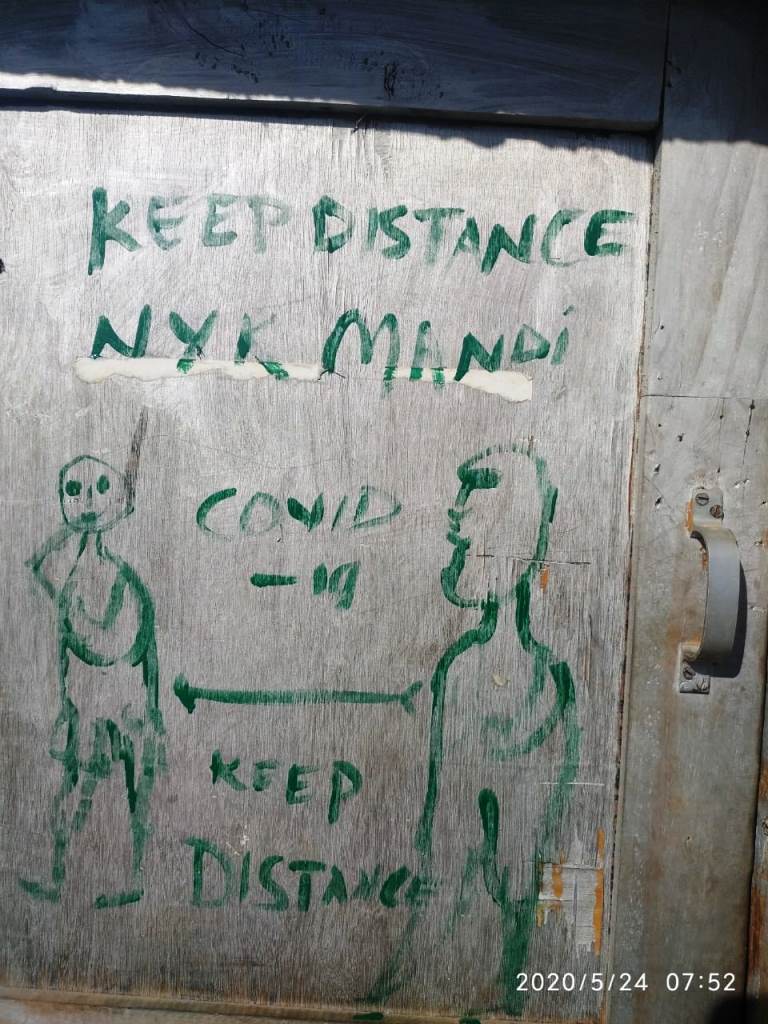 KEEP DISTANCE
NYK MANDi
COVID
-19
KEEP
DISTANCE
2020/5/24 07:52